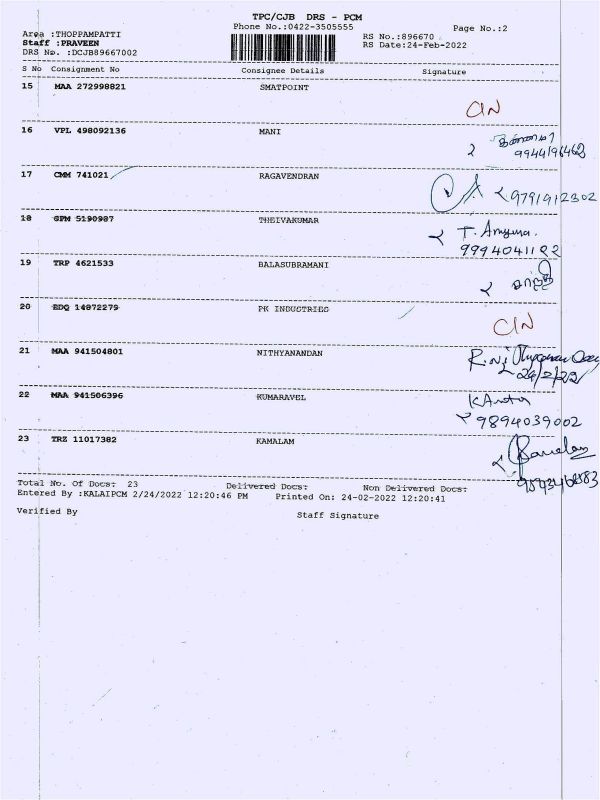 TPC/CJB DRS - PCM
Phone No.:0422-3505555
Page No.:2
Area :THOPPAMPATTI
RS No.:896670
Staff :PRAVEEN
RS Date:24-Feb-2022
DRS No. :DCJB89667002
S No Consignment No Consignee Details Signature
15 MAA 272998821 SMATPOINT
CIN
16 VPL 498092136 MANI
9944196462
17 CMM 741021 RAGAVENDRAN
9791912302
18 GPM 5190987 THEIVAKUMAR
9994041122
19 TRP 4621533 BALASUBRAMANI
20 EDQ 14872279 PK INDUSTRIES
CIN
21 MAA 941504801 NITHYANANDAN
24/2/22
22 MAA 941506396 KUMARAVEL
9894039002
23 TRZ 11017382 KAMALAM
Total No. Of Docs: 23 Delivered Docs: Non Delivered Docs:
Entered By :KALAIPCM 2/24/2022 12:20:46 PM Printed On: 24-02-2022 12:20:41
Verified By Staff Signature